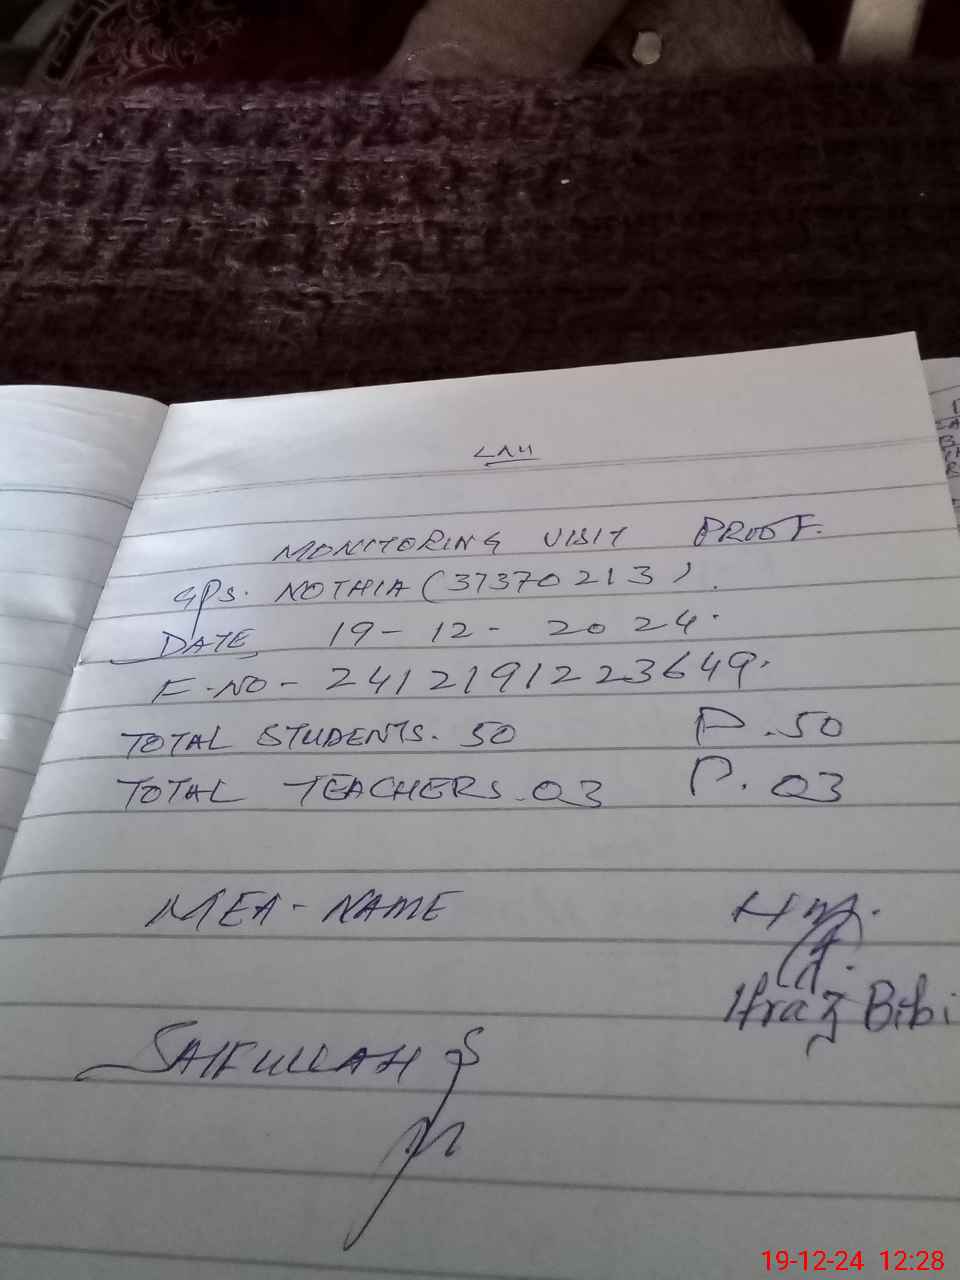 MONITORING VISIT PROOF.
GPS. NOTHIA (37370213).
DATE 19-12-2024.
F-NO - 2412191223649.
TOTAL STUDENTS. 50 P. 50
TOTAL TEACHERS. 03 P. 03
MEA - NAME Hm.
Ifraz Bibi
SAIFULLAH
19-12-24 12:28